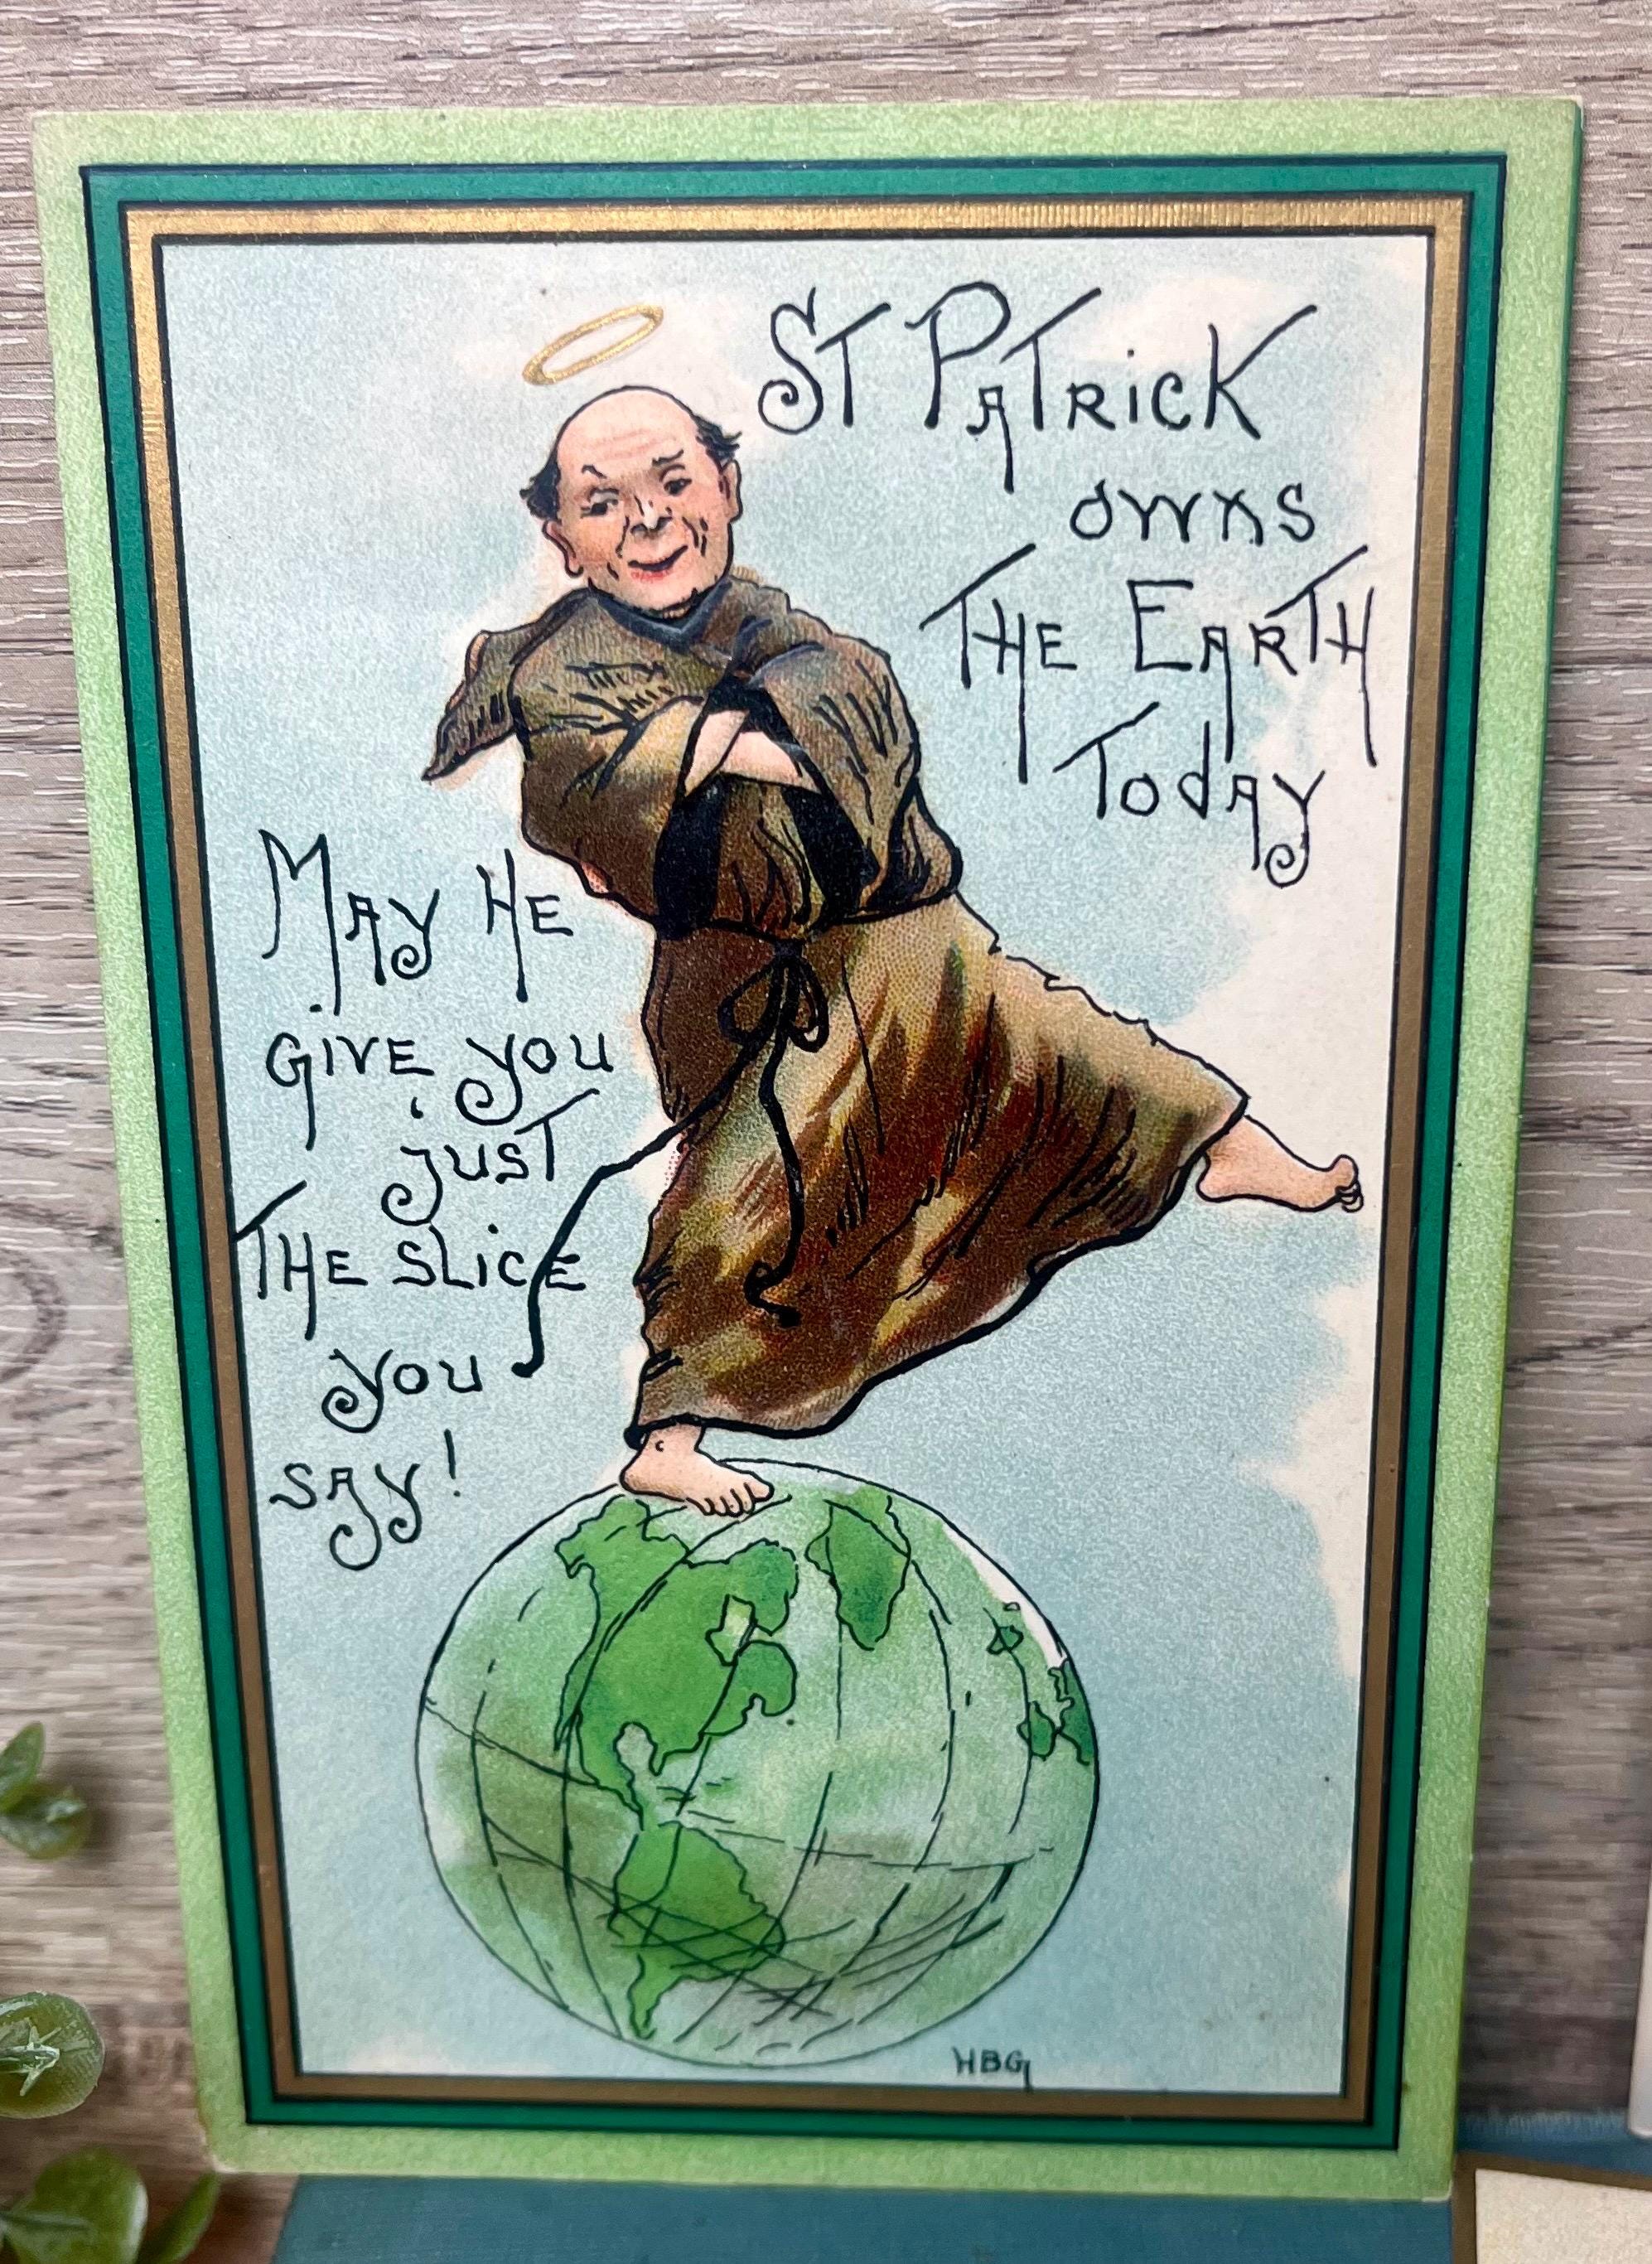 ST PATRICK
OWNS
THE EARTH
TODAY
MAY HE
GIVE YOU
JUST
THE SLICE
YOU
SAY!
HBG